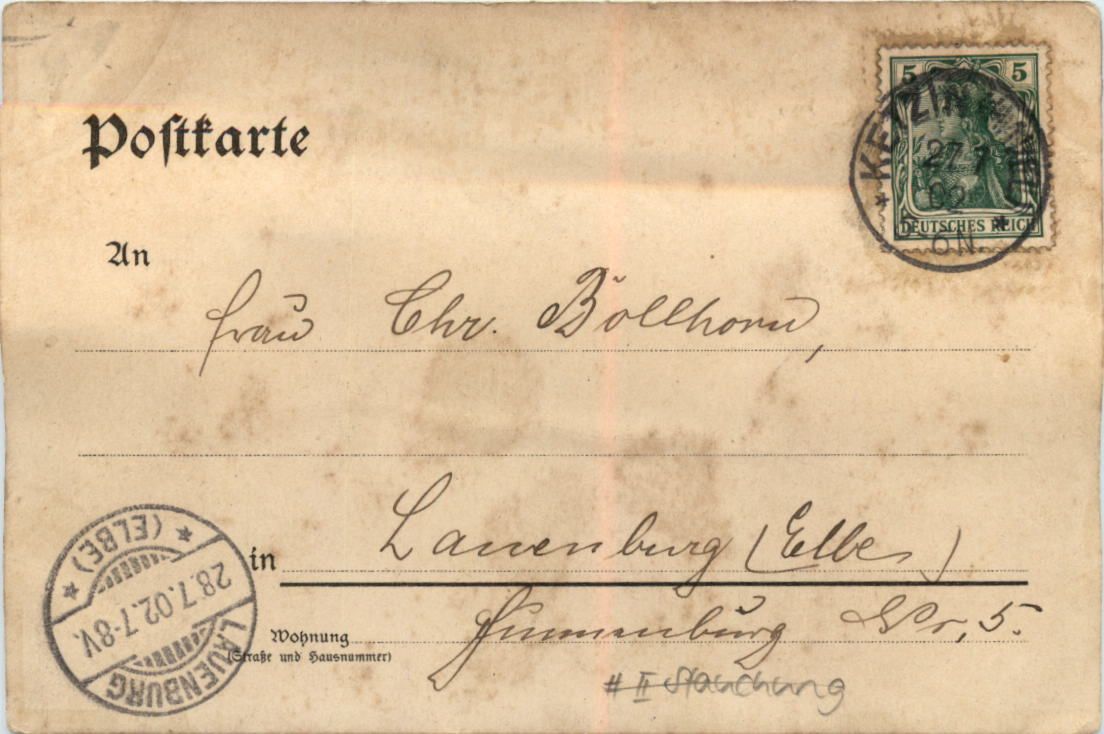 Postkarte
5 5
KETZIN
27.7
02
5-6N
DEUTSCHES REICH
An
Frau Chr. Böllhorn,
in Lauenburg (Elbe)
Wohnung
(Straße und Hausnummer)
Nr. 5.
II Stauchung
LAUENBURG
28.7.02.7-8V.
(ELBE)